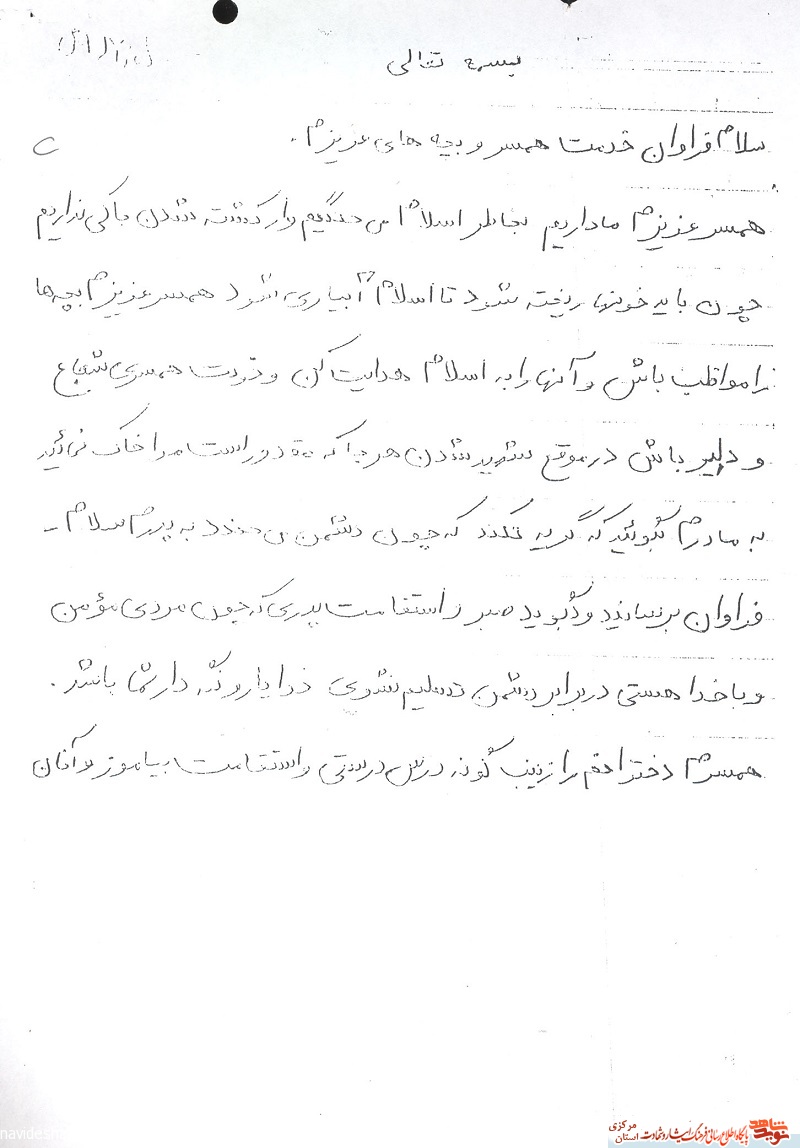 بسمه تعالی
سلام فراوان خدمت همسر و بچه های عزیزم.
همسر عزیزم ما داریم بخاطر اسلام می جنگیم و از کشته شدن باکی نداریم
چون باید خونها ریخته شود تا اسلام آبیاری شود همسر عزیزم بچه ها
را مواظب باش و آنها را به اسلام هدایت کن و خودت همسری شجاع
و دلیر باش در موقع شهید شدن هر جا که ده دور است مرا خاک نمائید
به مادرم بگوئید که گریه نکند که چون دشمن می خندد به پدرم سلام -
فراوان برسانید و بگوید صبر و استقامت پدری که چون مردی مؤمن
و با خدا هستی در برابر دشمن تسلیم نشوی خدا یار و نگه دار شما باشد.
همسرم دخترانم را زینب گونه درس درستی و استقامت بیاموز و آنان
نوید شاهد
پایگاه اطلاع رسانی فرهنگ ایثار و شهادت استان مرکزی
navides